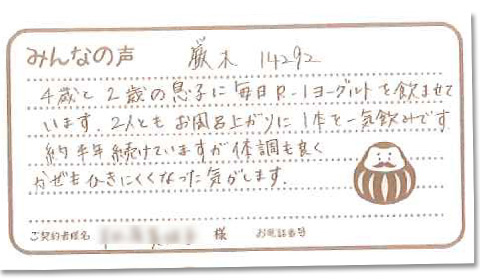 みんなの声 厳木 14292
4歳と2歳の息子に毎日R-1ヨーグルトを飲ませて
います。2人ともお風呂上がりに1本を一気飲みです
約半年続けていますが体調も良く
かぜもひきにくくなった気がします。
ご契約者様名 様 お電話番号